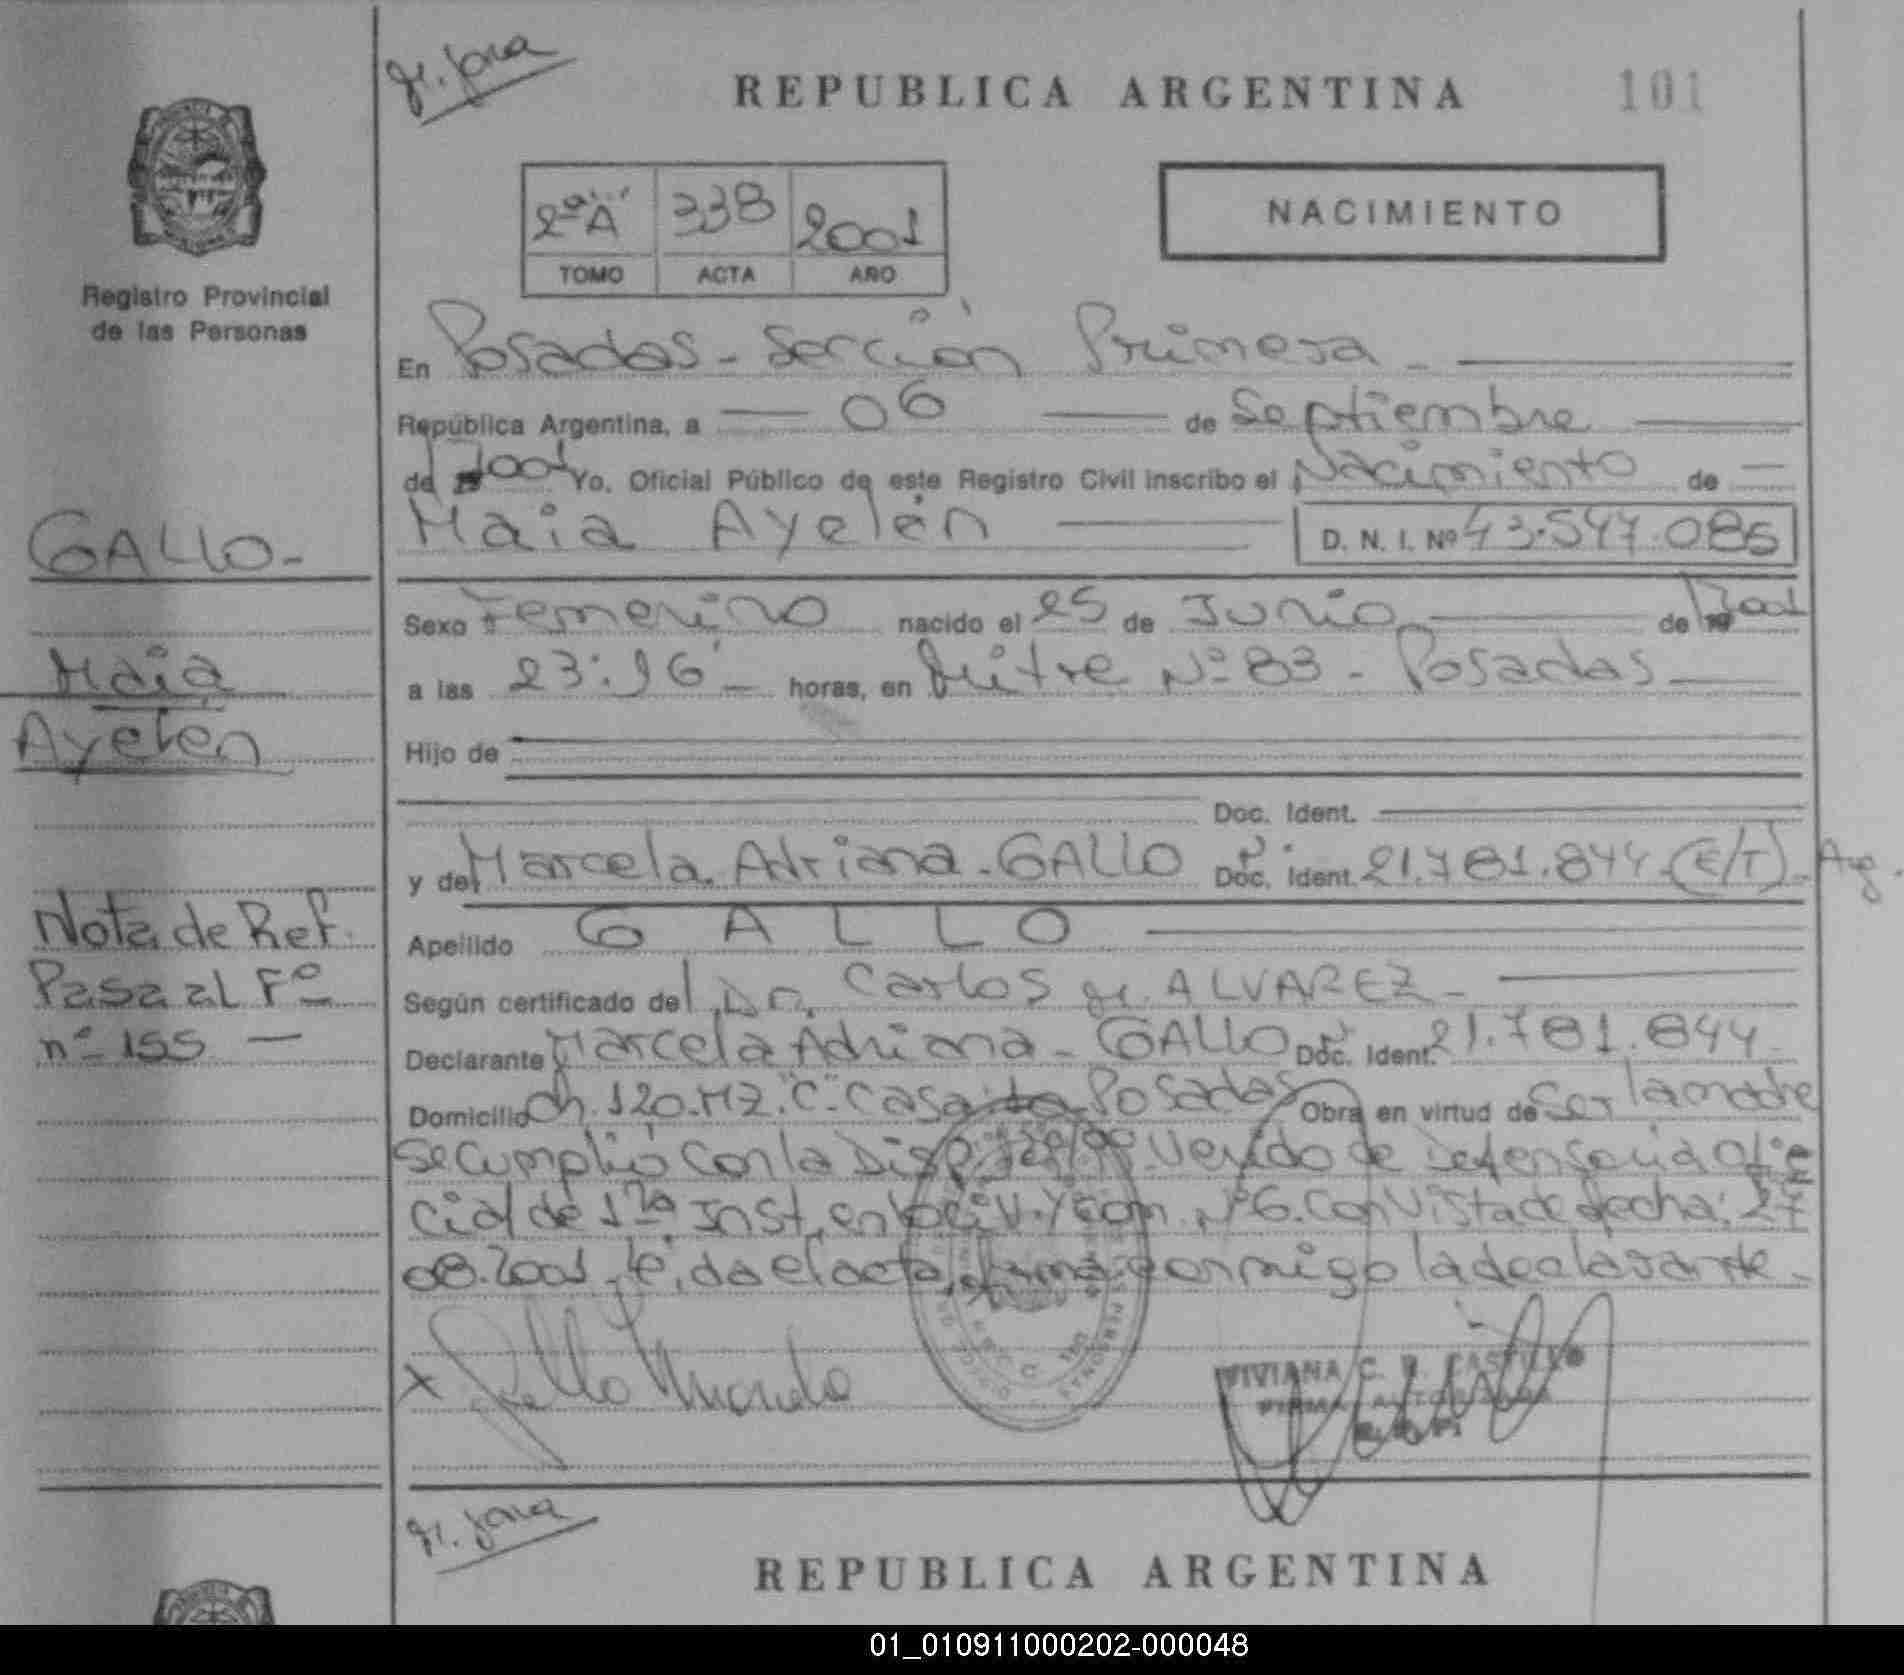 Jr. Jona
REPUBLICA ARGENTINA 101
2ª "A" 338 2001
TOMO ACTA AÑO
NACIMIENTO
Registro Provincial
de las Personas
En Posadas - Sección Primera -
República Argentina, a 06 de Septiembre
de 2001 Yo, Oficial Público de este Registro Civil inscribo el Nacimiento de
Maia Ayelén D. N. I. Nº 43.547.085
GALLO -
Maia
Ayelén
Sexo Femenino nacido el 25 de Junio de 2001
a las 23:16 - horas, en Mitre Nº 83 - Posadas
Hijo de
Doc. Ident.
y de Marcela Adriana - GALLO Doc. Ident. 21.781.844 - (E/T) - Ag.
Apellido GALLO
Según certificado del Dr. Carlos J. ALVAREZ -
Declarante Marcela Adriana - GALLO Doc. Ident. 21.781.844 -
Domicilio Ch. 120. MZ. "C" - Casa Posadas Obra en virtud de Ser la madre
Se cumplió con la Disp. Venido de Defensoría Ofi
cial de 1ra Inst. en lo Civ. y Com. Nº 6. Con Vista de fecha: 27
08.2001. Leída el acta, firma conmigo la declarante.
Nota de Ref.
Pasa al Fº
nº 155 —
X Gallo Marcela
VIVIANA C. R. CASTILLO
FIRMA AUTORIZADA
R.P.P.
Jr. Jona
REPUBLICA ARGENTINA
01_010911000202-000048